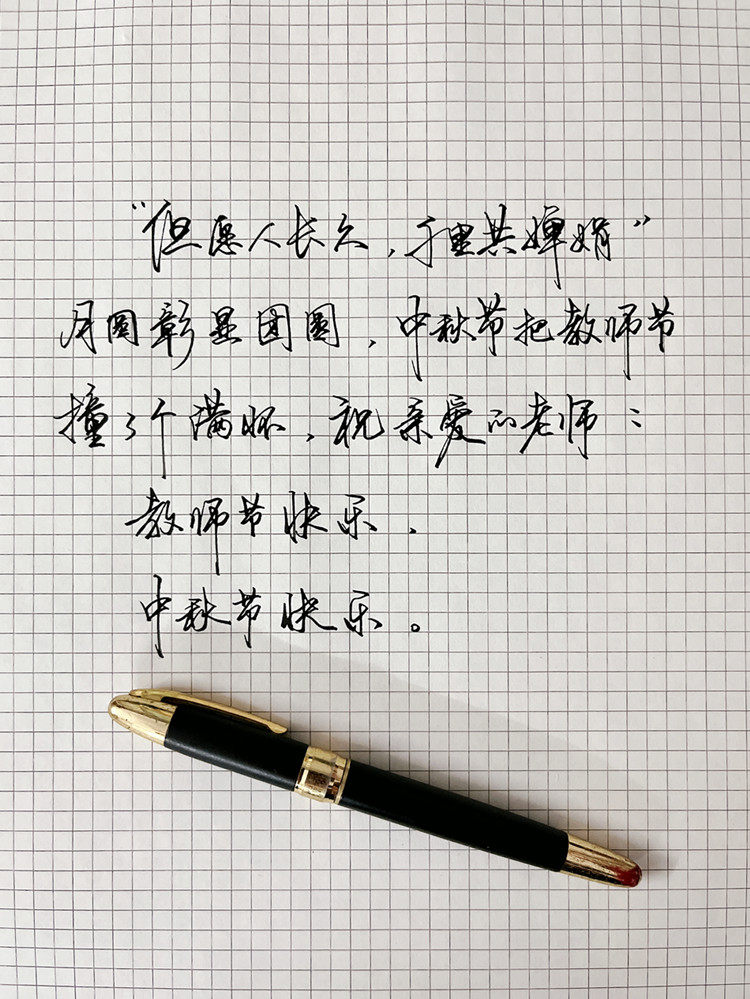 “但愿人长久,千里共婵娟”
月圆彰显团圆,中秋节把教师节
撞了个满怀,祝亲爱的老师:
教师节快乐.
中秋节快乐。